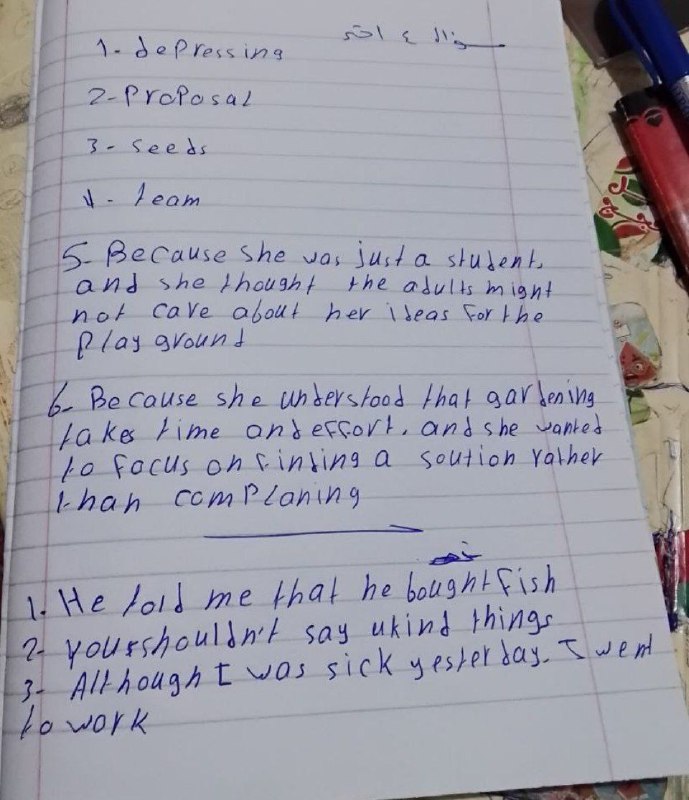 سؤال
1- depressing
2- Proposal
3- seeds
4- team
5- Because she was just a student,
and she thought the adults might
not care about her ideas for the
Play ground
6- Because she understood that gardening
takes time and effort, and she wanted
to focus on finding a soution rather
than complaning
1. He told me that he bought fish
2- you shouldn't say ukind things
3- Although I was sick yesterday. I went
to work